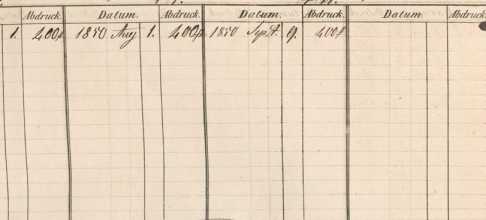 Abdruck. Datum. Abdruck. Datum. Abdruck. Datum. Abdruck.
1. 400 1850 Aug 1. 400 1850 Sept. 9. 400